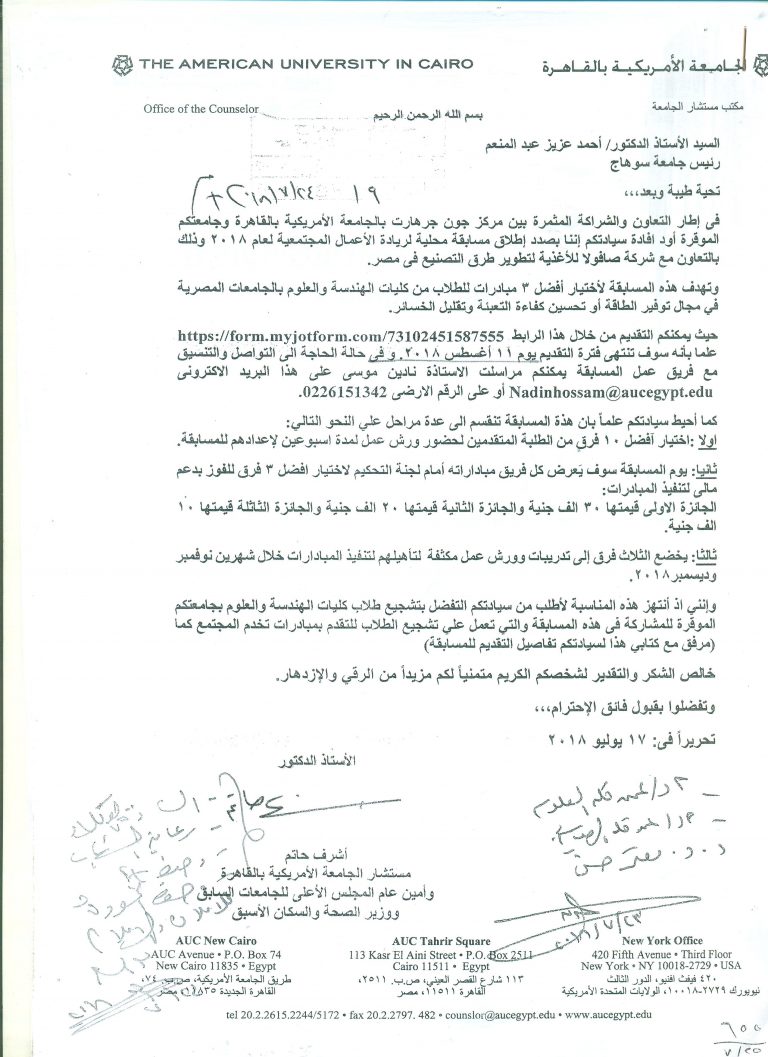 THE AMERICAN UNIVERSITY IN CAIRO
الجامعة الأمريكية بالقاهرة
Office of the Counselor
مكتب مستشار الجامعة
بسم الله الرحمن الرحيم
السيد الأستاذ الدكتور/ أحمد عزيز عبد المنعم
رئيس جامعة سوهاج
تحية طيبة وبعد،،،
فى إطار التعاون والشراكة المثمرة بين مركز جون جرهارت بالجامعة الأمريكية بالقاهرة وجامعتكم
الموقرة أود افادة سيادتكم إننا بصدد إطلاق مسابقة محلية لريادة الأعمال المجتمعية لعام ٢٠١٨ وذلك
بالتعاون مع شركة صافولا للأغذية لتطوير طرق التصنيع فى مصر.
وتهدف هذه المسابقة لأختيار أفضل ٣ مبادرات للطلاب من كليات الهندسة والعلوم بالجامعات المصرية
في مجال توفير الطاقة أو تحسين كفاءة التعبئة وتقليل الخسائر.
حيث يمكنكم التقديم من خلال هذا الرابط https://form.myjotform.com/73102451587555
علما بأنه سوف تنتهى فترة التقديم يوم ١١ أغسطس ٢٠١٨. و فى حالة الحاجة الى التواصل والتنسيق
مع فريق عمل المسابقة يمكنكم مراسلت الاستاذة نادين موسى على هذا البريد الاكترونى
Nadinhossam@aucegypt.edu أو على الرقم الارضى 0226151342.
كما أحيط سيادتكم علماً بان هذة المسابقة تنقسم الى عدة مراحل علي النحو التالي:
اولا :اختيار أفضل ١٠ فرق من الطلبة المتقدمين لحضور ورش عمل لمدة اسبوعين لإعدادهم للمسابقة.
ثانيا: يوم المسابقة سوف يَعرض كل فريق مباداراته أمام لجنة التحكيم لاختيار افضل ٣ فرق للفوز بدعم
مالى لتنفيذ المبادرات:
الجائزة الاولى قيمتها ٣٠ الف جنية والجائزة الثانية قيمتها ٢٠ الف جنية والجائزة الثالثة قيمتها ١٠
الف جنية.
ثالثا: يخضع الثلاث فرق إلى تدريبات وورش عمل مكثفة لتأهيلهم لتنفيذ المبادارات خلال شهرين نوفمبر
وديسمبر٢٠١٨.
وإنني اذ أنتهز هذه المناسبة لأطلب من سيادتكم التفضل بتشجيع طلاب كليات الهندسة والعلوم بجامعتكم
الموقرة للمشاركة فى هذه المسابقة والتي تعمل علي تشجيع الطلاب للتقدم بمبادرات تخدم المجتمع كما
(مرفق مع كتابي هذا لسيادتكم تفاصيل التقديم للمسابقة)
خالص الشكر والتقدير لشخصكم الكريم متمنياً لكم مزيداً من الرقي والإزدهار.
وتفضلوا بقبول فائق الإحترام،،،
تحريراً فى: ١٧ يوليو ٢٠١٨
الأستاذ الدكتور
أشرف حاتم
مستشار الجامعة الأمريكية بالقاهرة
وأمين عام المجلس الأعلى للجامعات السابق
ووزير الصحة والسكان الأسبق
AUC New Cairo
AUC Avenue • P.O. Box 74
New Cairo 11835 • Egypt
طريق الجامعة الأمريكية، ص.ب. ٧٤،
القاهرة الجديدة ١١٨٣٥، مصر
AUC Tahrir Square
113 Kasr El Aini Street • P.O. Box 2511
Cairo 11511 • Egypt
١١٣ شارع القصر العيني، ص.ب. ٢٥١١،
القاهرة ١١٥١١، مصر
New York Office
420 Fifth Avenue • Third Floor
New York • NY 10018-2729 • USA
٤٢٠ فيفث افنيو، الدور الثالث
نيويورك ٢٧٢٩-١٠٠١٨، الولايات المتحدة الأمريكية
tel 20.2.2615.2244/5172 • fax 20.2.2797. 482 • counslor@aucegypt.edu • www.aucegypt.edu